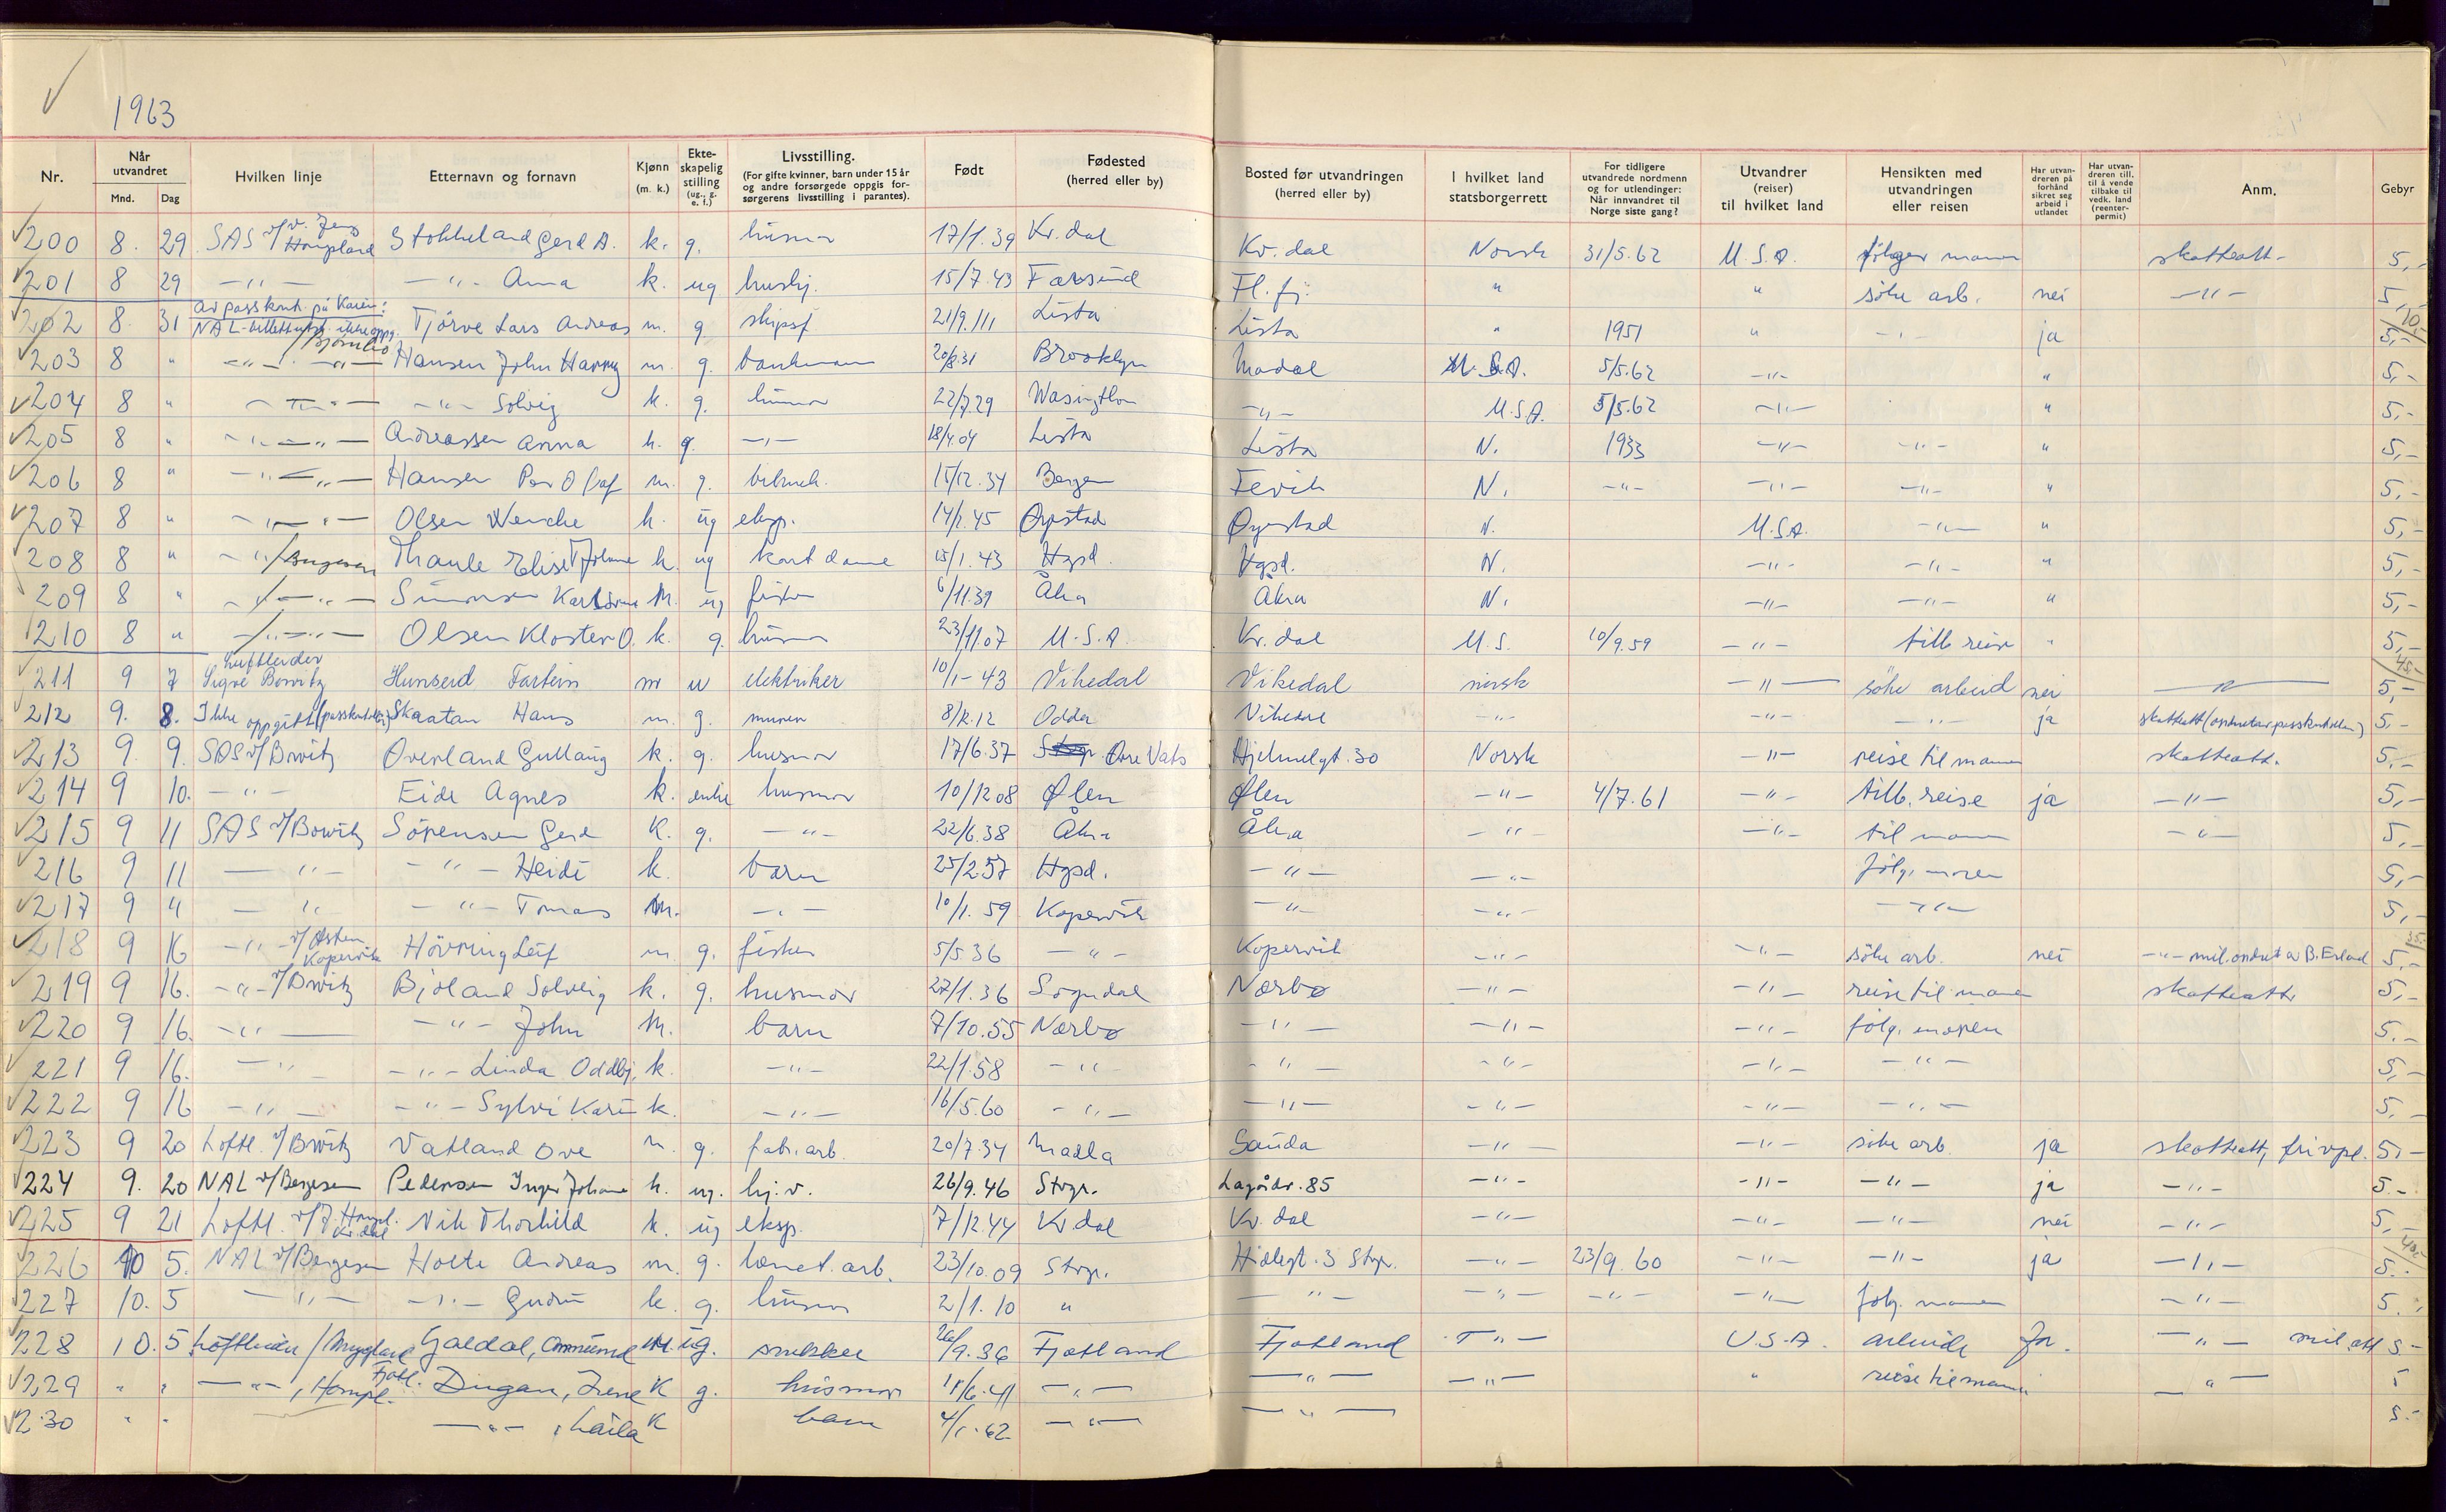 1963
Nr. Når utvandret Mnd. Dag Hvilken linje Etternavn og fornavn Kjønn (m. k.) Ekteskapelig stilling (ug., g. e. f.) Livsstilling. (For gifte kvinner, barn under 15 år og andre forsørgede oppgis forsørgerens livsstilling i parantes). Født Fødested (herred eller by) Bosted før utvandringen (herred eller by) I hvilket land statsborgerrett For tidligere utvandrede nordmenn og for utlendinger: Når innvandret til Norge siste gang? Utvandrer (reiser) til hvilket land Hensikten med utvandringen eller reisen Har utvandreren på forhånd sikret seg arbeid i utlandet Har utvandreren till. til å vende tilbake til vedk. land (reenterpermit) Anm. Gebyr
200 8. 29 SAS v/ Stokkeland Gerd A. k. g. husmor 17/1.39 Kv. dal Kv. dal Norsk 31/5.62 U.S.A. følger mannen skatteatt. 5,-
201 8 29 -"- -"- Anna k. ug hushj. 15/7.43 Farsund Fl. fj. " " søke arb. nei -"- 5,-
202 8. 31 Av passkont. på Karin: NAL-billettutst. ikke oppg. Tjörve Lars Andreas m. g. skipsf 21/9.111 Lista Lista " 1951 " -"- ja 5,-
203 8 " -"- -"- Hansen John Harry m. g. 20/8.31 Brooklyn Madal U.S.A. 5/5.62 -"- " 5,-
204 8 " -"- -"- Solveig k. g. husmor 22/7.29 Wasington -"- U.S.A. 5/5.62 -"- " 5,-
205 8 " -"- -"- Andreassen Anna k. g. -"- 18/4.04 Lista Lista N. 1933 -"- -"- " 5,-
206 8 " -"- -"- Hansen Per Olaf m. g. bilmek. 15/12.34 Bergen Fevik N. -"- -"- -"- " 5,-
207 8 " -"- -"- Olsen Wenche k. ug eksp. 14/2.45 Øyestad Øyestad N. U.S.A. -"- " 5,-
208 8 " -"-/Bergesen Thaule Elise Johanne k. ug kontdame 15/1.43 Hgsd. Hgsd. N. -"- -"- " 5,-
209 8 " -"- -"- Simonsen Karl m. ug fisker 6/11.39 Åkra Åkra N. -"- -"- " 5,-
210 8 " -"- -"- Olsen Kloster O. k. g. husmor 23/11.07 U.S.A. Kv. dal U.S. 10/9.59 -"- tilb. reise " 5,-
211 9 7 Loftleidir Sigve Bowitz Hunserd Tarstein m u elektriker 10/1-43 Vikedal Vikedal norsk -"- søke arbeid nei -"- 5,-
212 9. 8. Ikke oppgitt (passkontrollen) Skaatan Hans m. g. murer 8/12.12 Odda Vikedal -"- -"- -"- ja skatteatt (ordnet av passkontrollen) 5,-
213 9. 9. SAS v/Bowitz Øverland Gullaug k. g. husmor 17/6.37 Øvre Vats Hjelmelgt. 30 Norsk -"- reise til mannen skatteatt. 5,-
214 9 10. -"- Eide Agnes k. enke husmor 10/12 08 Ølen Ølen -"- 4/7.61 -"- tilb. reise ja -"- 5,-
215 9 11 SAS v/Bowitz Sörensen Gerd k. g. -"- 22/6.38 Åkra Åkra -"- -"- til mann -"- 5,-
216 9 11 -"- -"- Heidi k. barn 25/2.57 Hgsd. -"- -"- følg. moren 5,-
217 9 " -"- -"- Tomas m. -"- 10/1.59 Kopervik -"- -"- -"- 5,-
218 9 16 -"- v/ Kopervik Hövring Leif m. g. fisker 5/5 36 -"- Kopervik -"- -"- søke arb. nei -"- mil. ordnet av B. Erland 5,-
219 9 16. -"- v/Bowitz Bjöland Solveig k. g. husmor 27/1.36 Sogndal Nærbø -"- -"- reise til mannen skatteatt. 5,-
220 9 16. -"- -"- John m. barn 7/10.55 Nærbø -"- -"- -"- følg. moren 5,-
221 9 16. -"- -"- Linda Oddbj. k. -"- 22/1.58 -"- -"- -"- -"- -"- 5,-
222 9 16 -"- -"- Sylvi Karin k. -"- 16/5.60 -"- -"- -"- -"- -"- 5,-
223 9 20 Loftl. v/Bowitz Vatland Ove m. g. fabr. arb. 20/7.34 Madla Sauda -"- -"- søke arb. ja skatteatt, frivpl. 5,-
224 9. 20 NAL v/Bergesen Pedersen Inger Johanne k. ug. hj. v. 26/9.46 Stvgr. Lagårdsv. 85 -"- -"- -"- ja -"- 5.-
225 9 21 Loftl. v/J. Hompl. Kv. dal Vik Thorhild k. ug eksp. 7/12.44 Kv. dal Kv. dal -"- -"- -"- nei -"- 5,-
226 10 5. NAL v/Bergesen Holte Andreas m. g. arb. 23/10.09 Stvgr. 3 Stvgr. -"- 23/9.60 -"- -"- ja -"- 5.-
227 10. 5 -"- -"- Gudrun k. g. husmor 2/1.10 " -"- -"- -"- -"- følg. mannen -"- 5.-
228 10. 5. Loftleidir / Galdal, m. ug. snekker 26/9.36 Fjotland Fjotland -"- U.S.A. arbeide Ja. -"- mil. att 5.-
229 " " -"-, Hompl. Fjotl. Dugan, Irene k g. husmor 11/6.41 -"- -"- -"- " reise til mann -"- 5
230 " " -"-, Laila k barn 4/1.62 -"- -"- 5.-